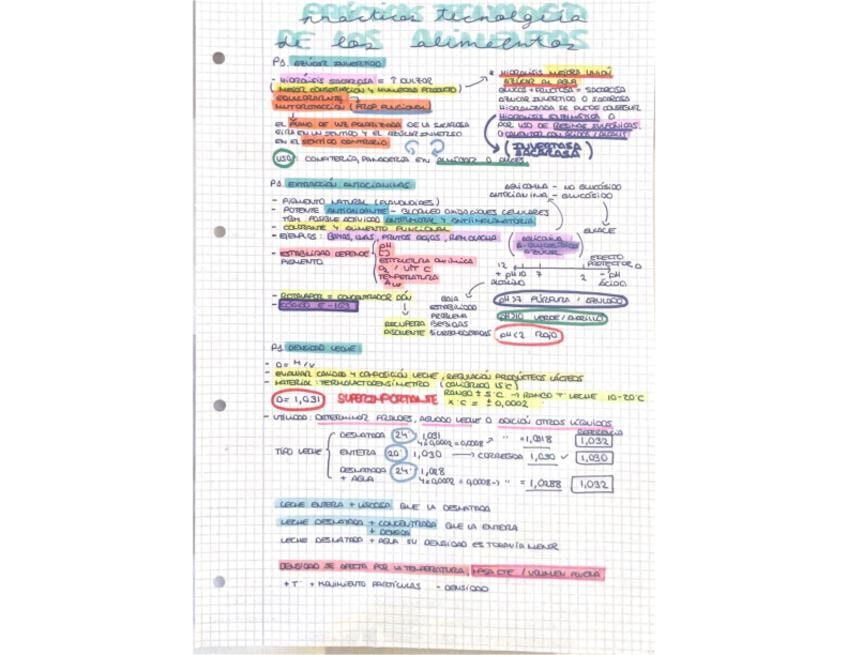 Prácticas tecnología
de los alimentos
P1. AZÚCAR INVERTIDO
- HIDRÓLISIS SACAROSA = ↑ DULZOR
(MEJOR CONSERVACIÓN Y HUMEDAD PRODUCTO)
(PROP. FUNCIONAL)
EL PLANO DE LUZ POLARIZADA DE LA SACAROSA
GIRA EN UN SENTIDO Y EL AZÚCAR INVERSO
EN EL SENTIDO CONTRARIO
USO: CONFITERÍA, PANADERÍA EN ALMÍBAR O
* HIDRÓLISIS MEJORA UNIÓN
AZÚCAR AL AGUA
GLUCOS + FRUCTOSA = SACAROSA
AZÚCAR INVERTIDO O SACAROSA
HIDROLIZADA SE PUEDE CONSEGUIR
HIDRÓLISIS ENZIMÁTICA O
POR USO DE RESINAS SULFÓRICAS
(INVERTASA
SACARASA)
P2. EXTRACCIÓN ANTOCIANINAS
- PIGMENTO NATURAL (FLAVONOIDES)
- POTENTE ANTIOXIDANTE - BLOQUEO OXIDACIONES CELULARES
TBM POSIBLE ACTIVIDAD ANTITUMORAL Y ANTIINFLAMATORIA
- COLORANTE Y ALIMENTO FUNCIONAL
- EJEMPLOS: BAYAS, UVAS, FRUTOS ROJOS, REMOLACHA
- ESTABILIDAD DEPENDE
PIGMENTO
pH
ESTRUCTURA QUÍMICA
O2 / VIT C
TEMPERATURA
Aw
AGLICONA - NO GLUCÓSIDO
ANTOCIANINA - GLUCÓSIDO
ENLACE
AZÚCAR
EFECTO
PROTECTOR
12 7 2
ALCALINO
- pH
ÁCIDO
- ROTAVAPOR = CONCENTRADOR
- CÓDIGO E-163
RECUPERA
DISOLVENTE
BAJA
ESTABILIDAD
PROBLEMA
BEBIDAS
pH>7 PÚRPURA / AZULADO
pH>10 VERDE / AMARILLO
pH<2 ROJO
P3. DENSIDAD LECHE
- D = M/V
- EVALUAR CALIDAD Y COMPOSICIÓN LECHE, REGULACIÓN PRODUCTOS LÁCTEOS
- MATERIAL: TERMOLACTODENSÍMETRO (CALIBRADO 15°C)
D = 1,031 SUPERIMPORTANTE
RANGO ± 5°C → RANGO T LECHE 10-20°C
X °C = ± 0,0002
- UTILIDAD: DETERMINAR FRAUDES, AGUADO LECHE O ADICIÓN OTROS LÍQUIDOS
REFERENCIA
TIPO LECHE
DESNATADA 24° 1,031
4 x 0,0002 = 0,0008 → " = 1,0318 1,032
ENTERA 20° 1,030 → CORREGIDA 1,030 ✓ 1,030
DESNATADA 24° 1,028
+ AGUA 4 x 0,0002 = 0,0008 → " = 1,0288 1,032
LECHE ENTERA + VISCOSA QUE LA DESNATADA
LECHE DESNATADA + CONCENTRADA QUE LA ENTERA
+ DENSIDA
LECHE DESNATADA + AGUA SU DENSIDAD ES TODAVÍA MENOR
DENSIDAD SE AFECTA POR LA TEMPERATURA, MASA CTE / VOLUMEN
+ T° + MOVIMIENTO PARTÍCULAS - DENSIDAD